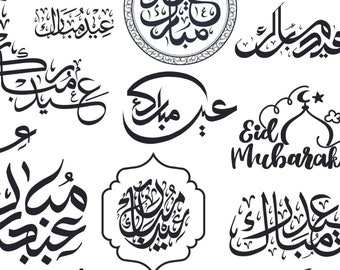 عيد مبارك
مبارك
عيد مبارك
عيد مبارك
عيد مبارك
Eid
Mubarak
عيد مبارك
عيد مبارك
عيد مبارك